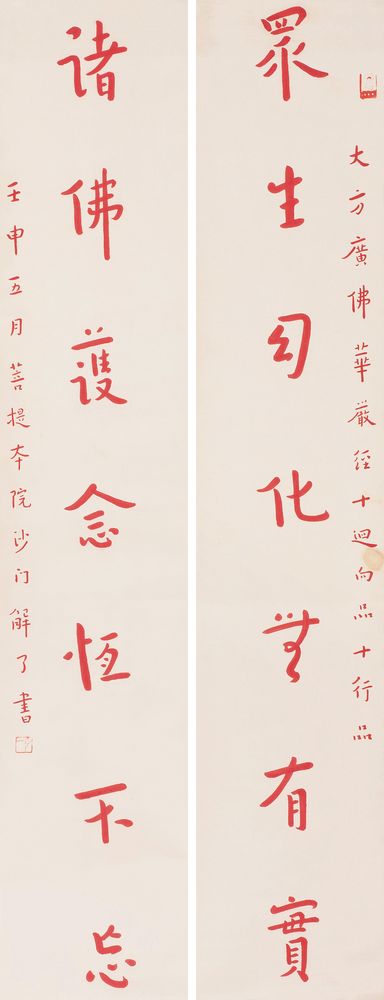 大方廣佛華嚴經十迴向品十行品
眾生幻化無有實
諸佛護念恆不忘
壬申五月菩提夲院沙门解了書